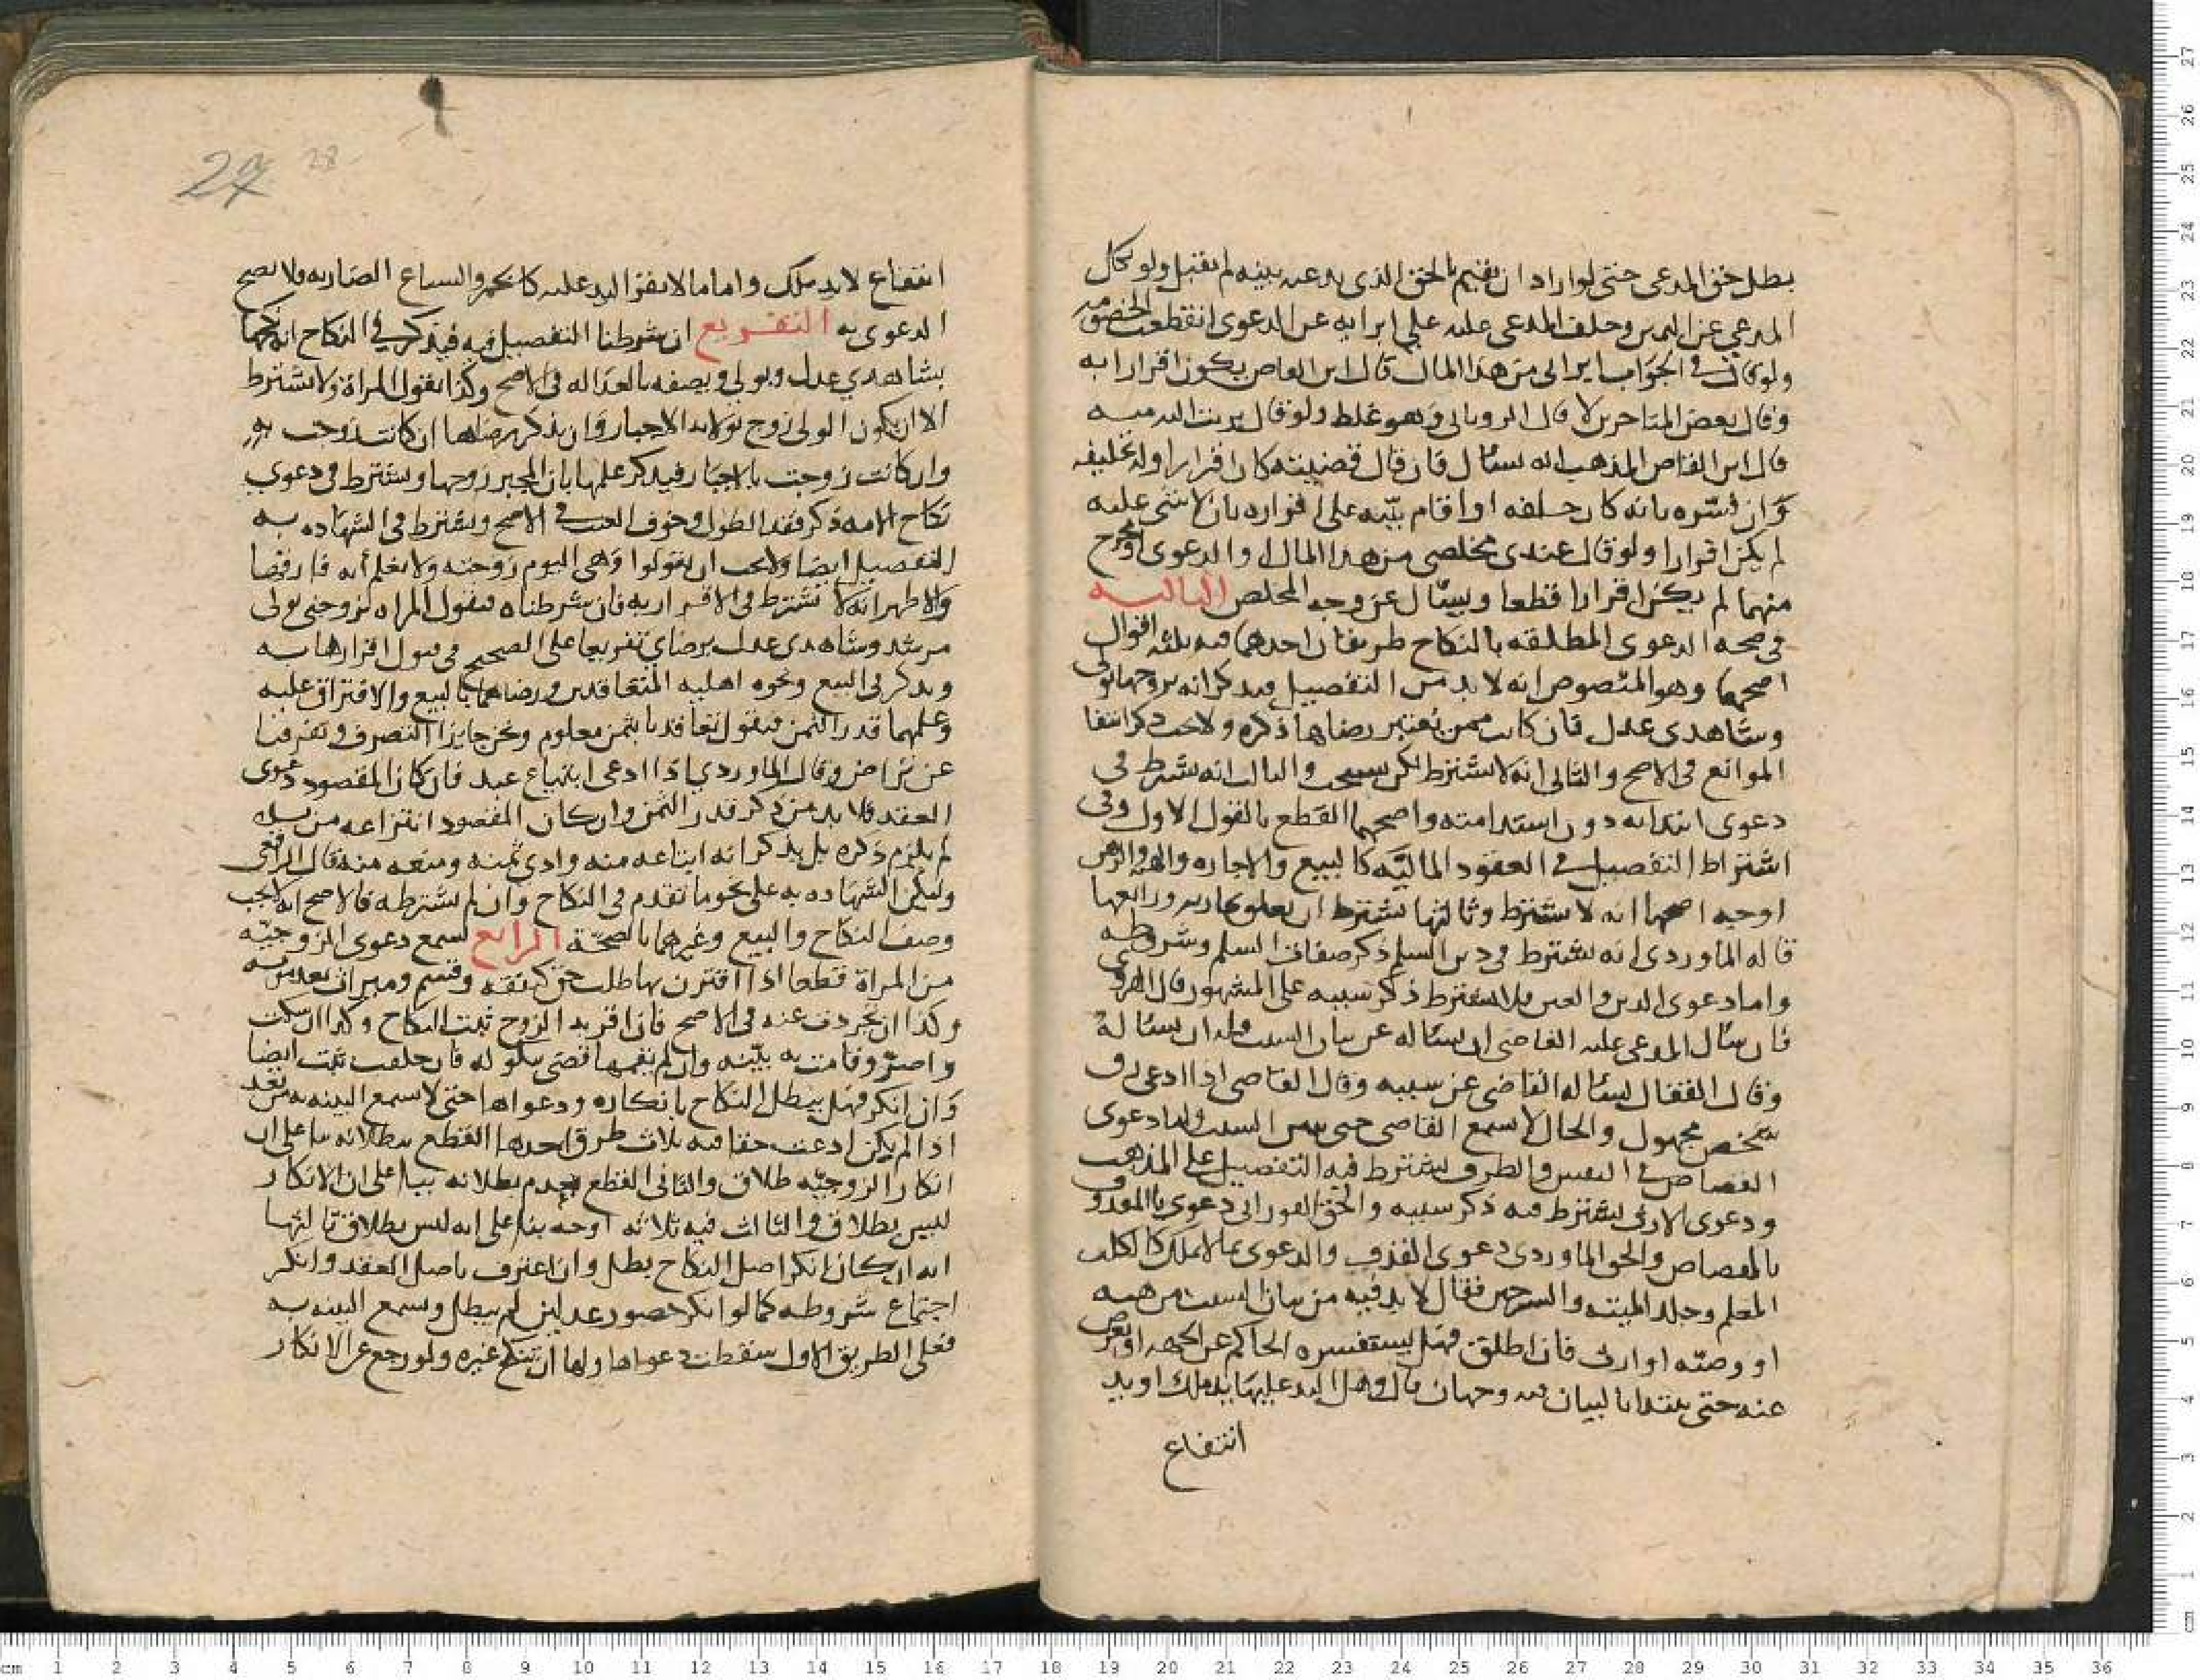 بطل حق المدعى حتى لو اراد ان يقيم بالحق الذى يدعيه بينه لم تقبل ولو نكل
المدعى عن اليمين وحلف المدعى عليه على ابرايه عن الدعوى انقطعت الخصومه
ولو قال في الجواب ابراني من هذا المال قال ابن القاص يكون اقرارا به
وقال بعض المتاخرين لا قال الروياني وهو غلط ولو قال بريت اليه منه
قال ابن القاص المذهب انه يسئال فان قال قضيته كان اقرارا وله تحليفه
وان فسره بانه كان حلفه او اقام بينه على اقراره بان لا شى عليه
لم يكن اقرارا ولو قال عندى مخلصى من هذا المال والدعوى او مخرج
منهما لم يكن اقرارا قطعا ويسئال عن وجه المخلص الثالثه
في صحه الدعوى المطلقه بالنكاح طريقان احدهما فيه ثلثه اقوال
اصحها وهو المنصوص انه لا بد من التفصيل فيذكر انه تزوجها بولى
وشاهدى عدل فان كانت ممن يعتبر رضاها ذكره ولا يجب ذكر انتفا
الموانع في الاصح والثانى انه لا يشترط لكن يستحب والثالث انه يشترط في
دعوى ابتدائه دون استدامته واصحهما القطع بالقول الاول وفي
اشتراط التفصيل في العقود الماليه كالبيع والاجاره والهبه والرهن
اوجه اصحها انه لا يشترط وثالثها يشترط ان تعلق بجاريه ورابعها
قاله الماوردى انه يشترط في دين السلم ذكر صفات السلم وشروطه
واما دعوى الدين والعين فلا يشترط ذكر سببه على المشهور قال الهروى
فان سال المدعى عليه القاضى ان يسئاله عن بيان السبب فله ان يسئاله
وقال القفال يسئاله القاضى عن سببه وقال القاضى اذا ادعى رق
شخص مجهول والحال لا يسمع القاضى حتى يبين السبب واما دعوى
القصاص في النفس والطرف يشترط فيه التفصيل على المذهب
ودعوى الارث يشترط فيه ذكر سببه والحق الفورانى دعوى
بالقصاص والحق الماوردى دعوى القذف والدعوى بما لا يملك كالكلب
المعلم وجلد الميته والسرجين فقال لا بد فيه من بيان السبب من هبه
او وصيه او ارث فان اطلق فهل يستفسره الحاكم عن الجهه او يعرض
عنه حتى يبتدا بالبيان فيه وجهان قال وهل اليد عليها يد ملك او يد
انتفاع
27
28
انتفاع لا يد ملك واما ما لا يقر اليد عليه كالخمر والسباع الضاريه فلا تصح
الدعوى به التفريع ان شرطنا التفصيل فيه فيذكر في النكاح انه نكحها
بشاهدي عدل وبولى ويصفه بالعداله في الاصح وكذا يقول المراة ولا يشترط
الا ان يكون الولى زوج بولايه الاجبار وان يذكر رضاها ان كانت زوجت به
وان كانت زوجت بالاجبار فيذكر علمها بان المجبر زوجها ويشترط في دعوى
نكاح الامه ذكر فقد الطول وخوف العنت في الاصح ويشترط في الشهاده به
التفصيل ايضا ولا يجب ان يقولوا وهى اليوم زوجته ولا نعلم انه فارقها
والاظهر انه لا يشترط في الاقرار به فان شرطناه فيقول المراه تزوجنى بولى
مرشد وشاهدى عدل برضاى تفريعا على الصحيح في قبول اقرارها به
ويذكر في البيع ونحوه اهليه المتعاقدين ورضاهما بالبيع والافتراق عليه
وعلمهما قدر الثمن فيقول تعاقدنا بثمن معلوم ونحن جايزا التصرف وتفرقنا
عن تراض وقال الماوردي اذا ادعى ابتياع عبد فان كان المقصود دعوى
العقد فلا بد من ذكر قدر الثمن وان كان المقصود انتزاعه من يده
لم يلزم ذكره بل يذكر انه ابتاعه منه وادى ثمنه ومنعه منه قال الرافعى
وليكن الشهاده به على نحو ما تقدم في النكاح وان لم نشترطه فالاصح انه لا يجب
وصف النكاح والبيع وغيرهما بالصحة الرابع تسمع دعوى الزوجيه
من المراة قطعا اذا اقترن بها طلب حق كنفقه وقسم وميراث بعد موته
وكذا ان تجردت عنه في الاصح فان اقر به الزوج ثبت النكاح وكذا ان سكت
واصر وقامت به بينه وان لم تقمها قضى بنكوله فان حلفت ثبت ايضا
وان انكر فهل يبطل النكاح بانكاره ودعواها حتى لا تسمع البينه به بعد
اذا لم يكن ادعت حقا فيه ثلاث طرق احدها القطع ببطلانه بنا على ان
انكار الزوجيه طلاق والثانى القطع بعدم بطلانه بنا على ان الانكار
ليس بطلاق والثالث فيه ثلاثه اوجه بنا على انه ليس بطلاق ثالثها
انه ان كان انكر اصل النكاح بطل وان اعترف باصل العقد وانكر
اجتماع شروطه كما لو انكر حضور عدلين لم يبطل وتسمع البينه به
فعلى الطريق الاول سقطت دعواها ولها ان تنكح غيره ولو رجع عن الانكار